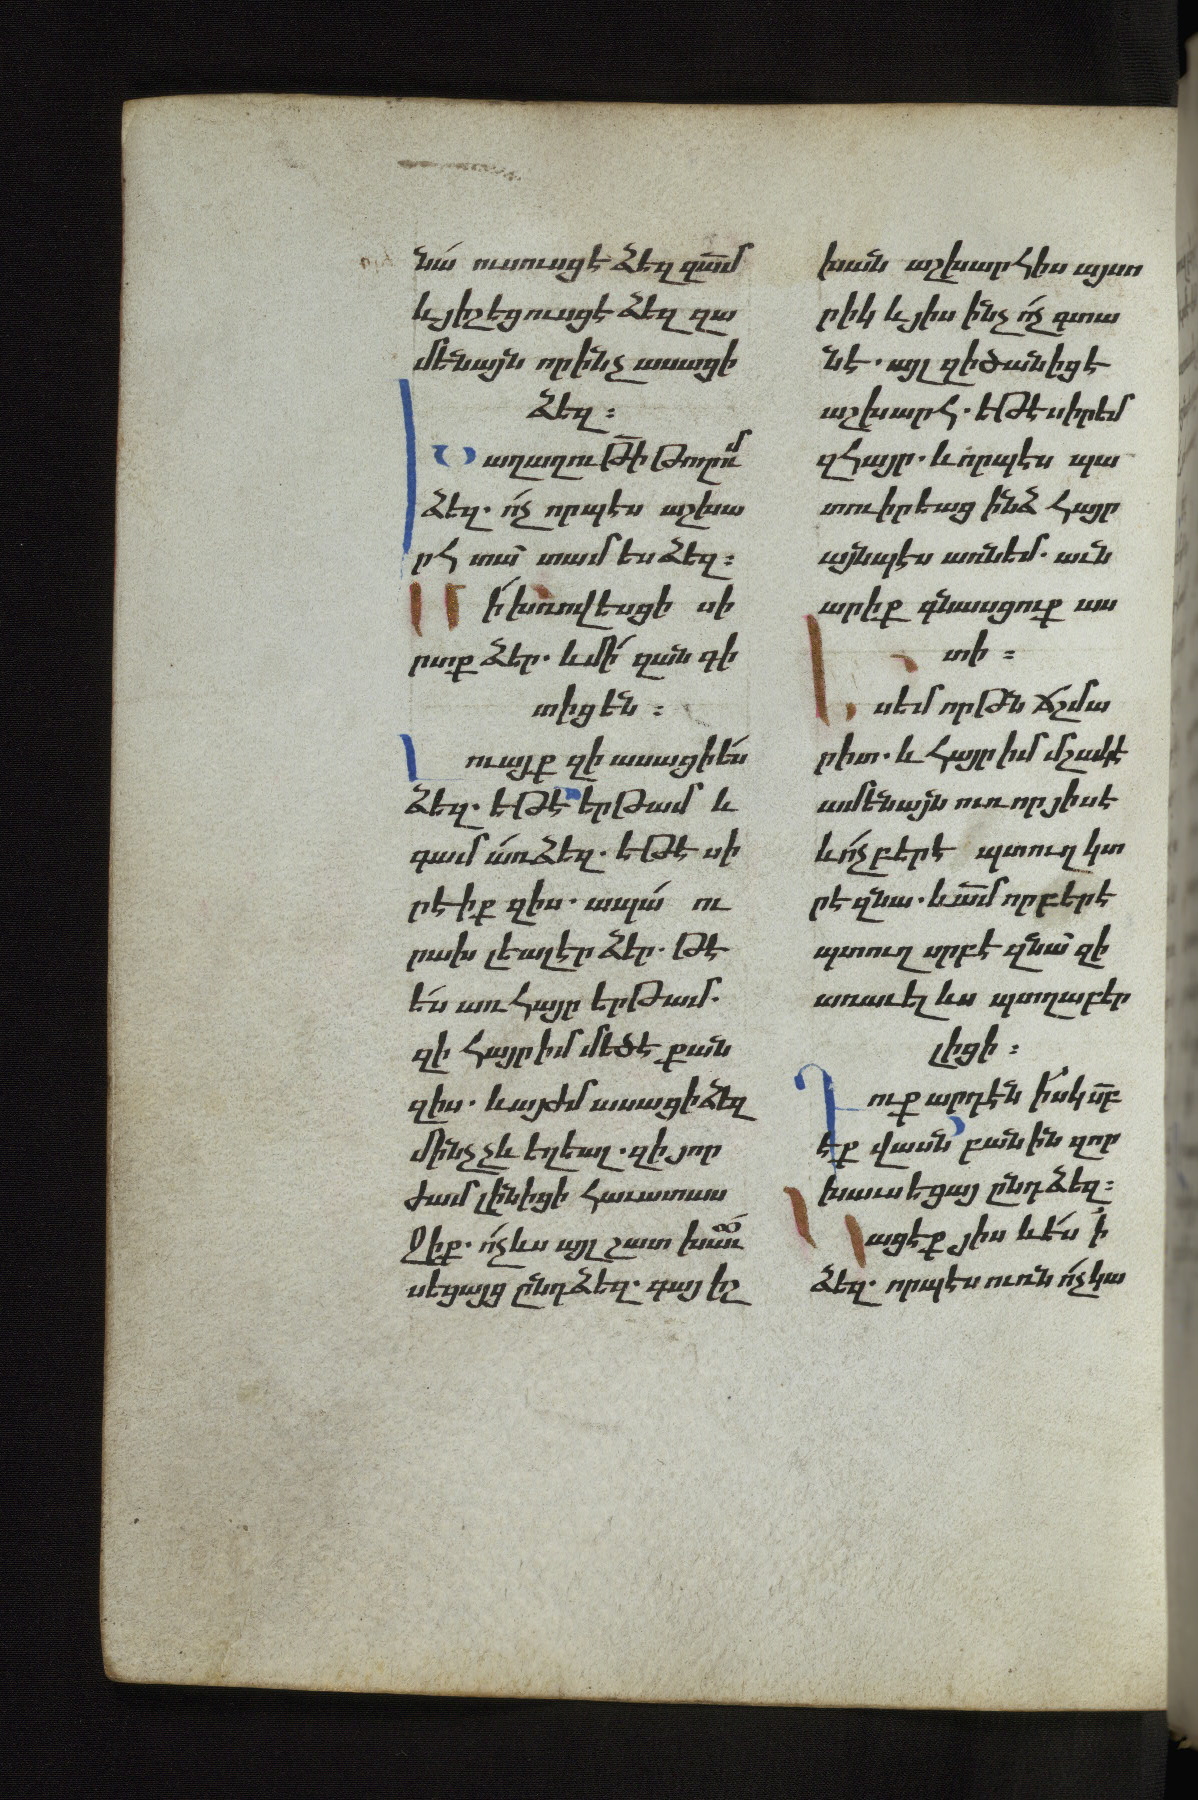 նա́ ուսուսցէ ձեզ զա̅մ
և յիշեցուսցէ ձեզ զա
մենայն որինչ ասացի
ձեզ ։
Խաղաղութի̅ թողում
ձեզ. ո́չ որպէս աշխա
րհ տայ տամ ես ձեզ ։
Մի́ խռովեսցի սի
րտք ձեր. և մի́ զան գի
տիցեն ։
Լուայք զի ասացի ե́ս
ձեզ. եթէ երթամ և
գամ ա́ռ ձեզ. եթէ սի
րէիք զիս. ապա́ ու
րախ լեալէր ձեր. թէ
ե́ս առ հայր երթամ.
զի հայր իմ մեծ է քան
զիս. և այժմ ասացի ձեզ
մինչչև եղեալ. զի յոր
ժամ լինիցի հաւատաս
ջիք. ո́չ ևս այլ շատ խաւ
սեցայց ընդ ձեզ. գայ իշ
խան աշխարհիս այսո
րիկ և յիս ինչ ո́չ գտա
նէ. այլ զի ծանիցէ
աշխարհ. եթէ սիրեմ
զհայր. և որպէս պա
տուիրեաց ինձ հայր
այնպէս առնեմ. աւն
արիք գնասցուք աս
տի ։
Ես եմ որթն ճշմա
րիտ. և հայր իմ մշակ է
ամենայն ուռ որ յիս է
և ո́չ բերէ պտուղ կտ
րէ զնա. և ա̅մ որ բերէ
պտուղ սրբէ զնայ զի
առաւել ևս պտղաբեր
լիցի ։
Դուք արդէն իսկ ս̅բ
էք վասն բանին զոր
խաւսեցայ ընդ ձեզ ։
Կացէք յիս և ե́ս ՛ի
ձեզ. որպէս ուռն ո́չ կա